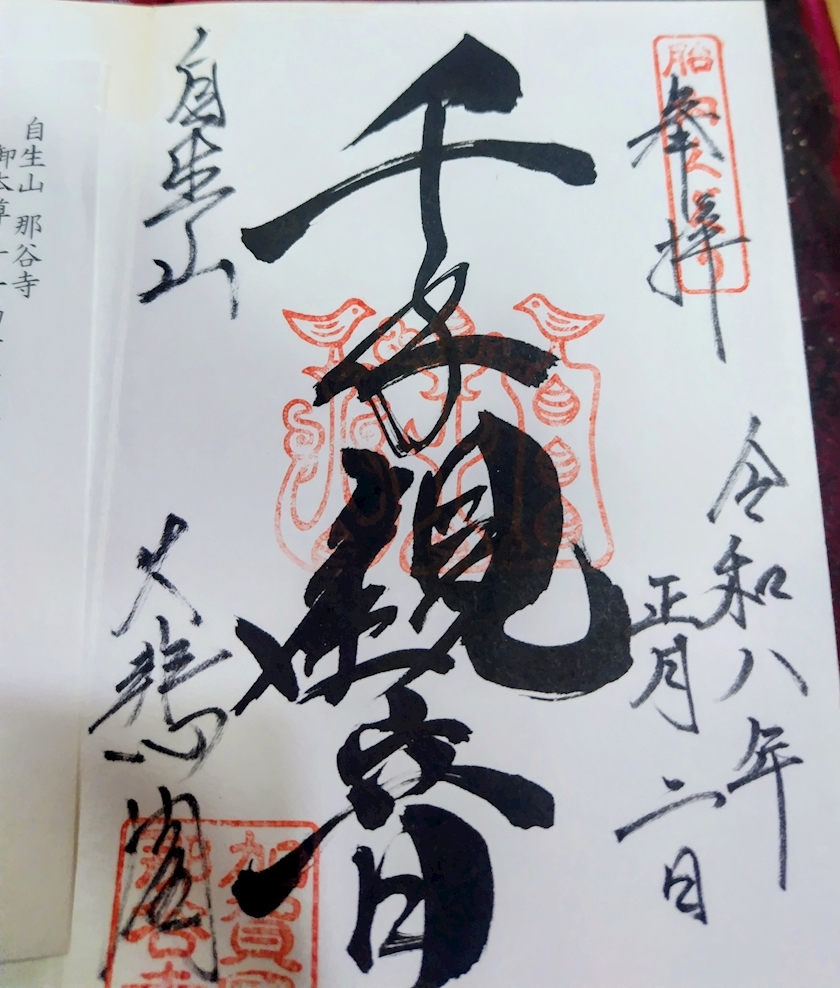 胎内くぐり
奉拝
令和八年
正月二日
千手観音
自生山
大悲閣
加賀國
那谷寺
自生山 那谷寺